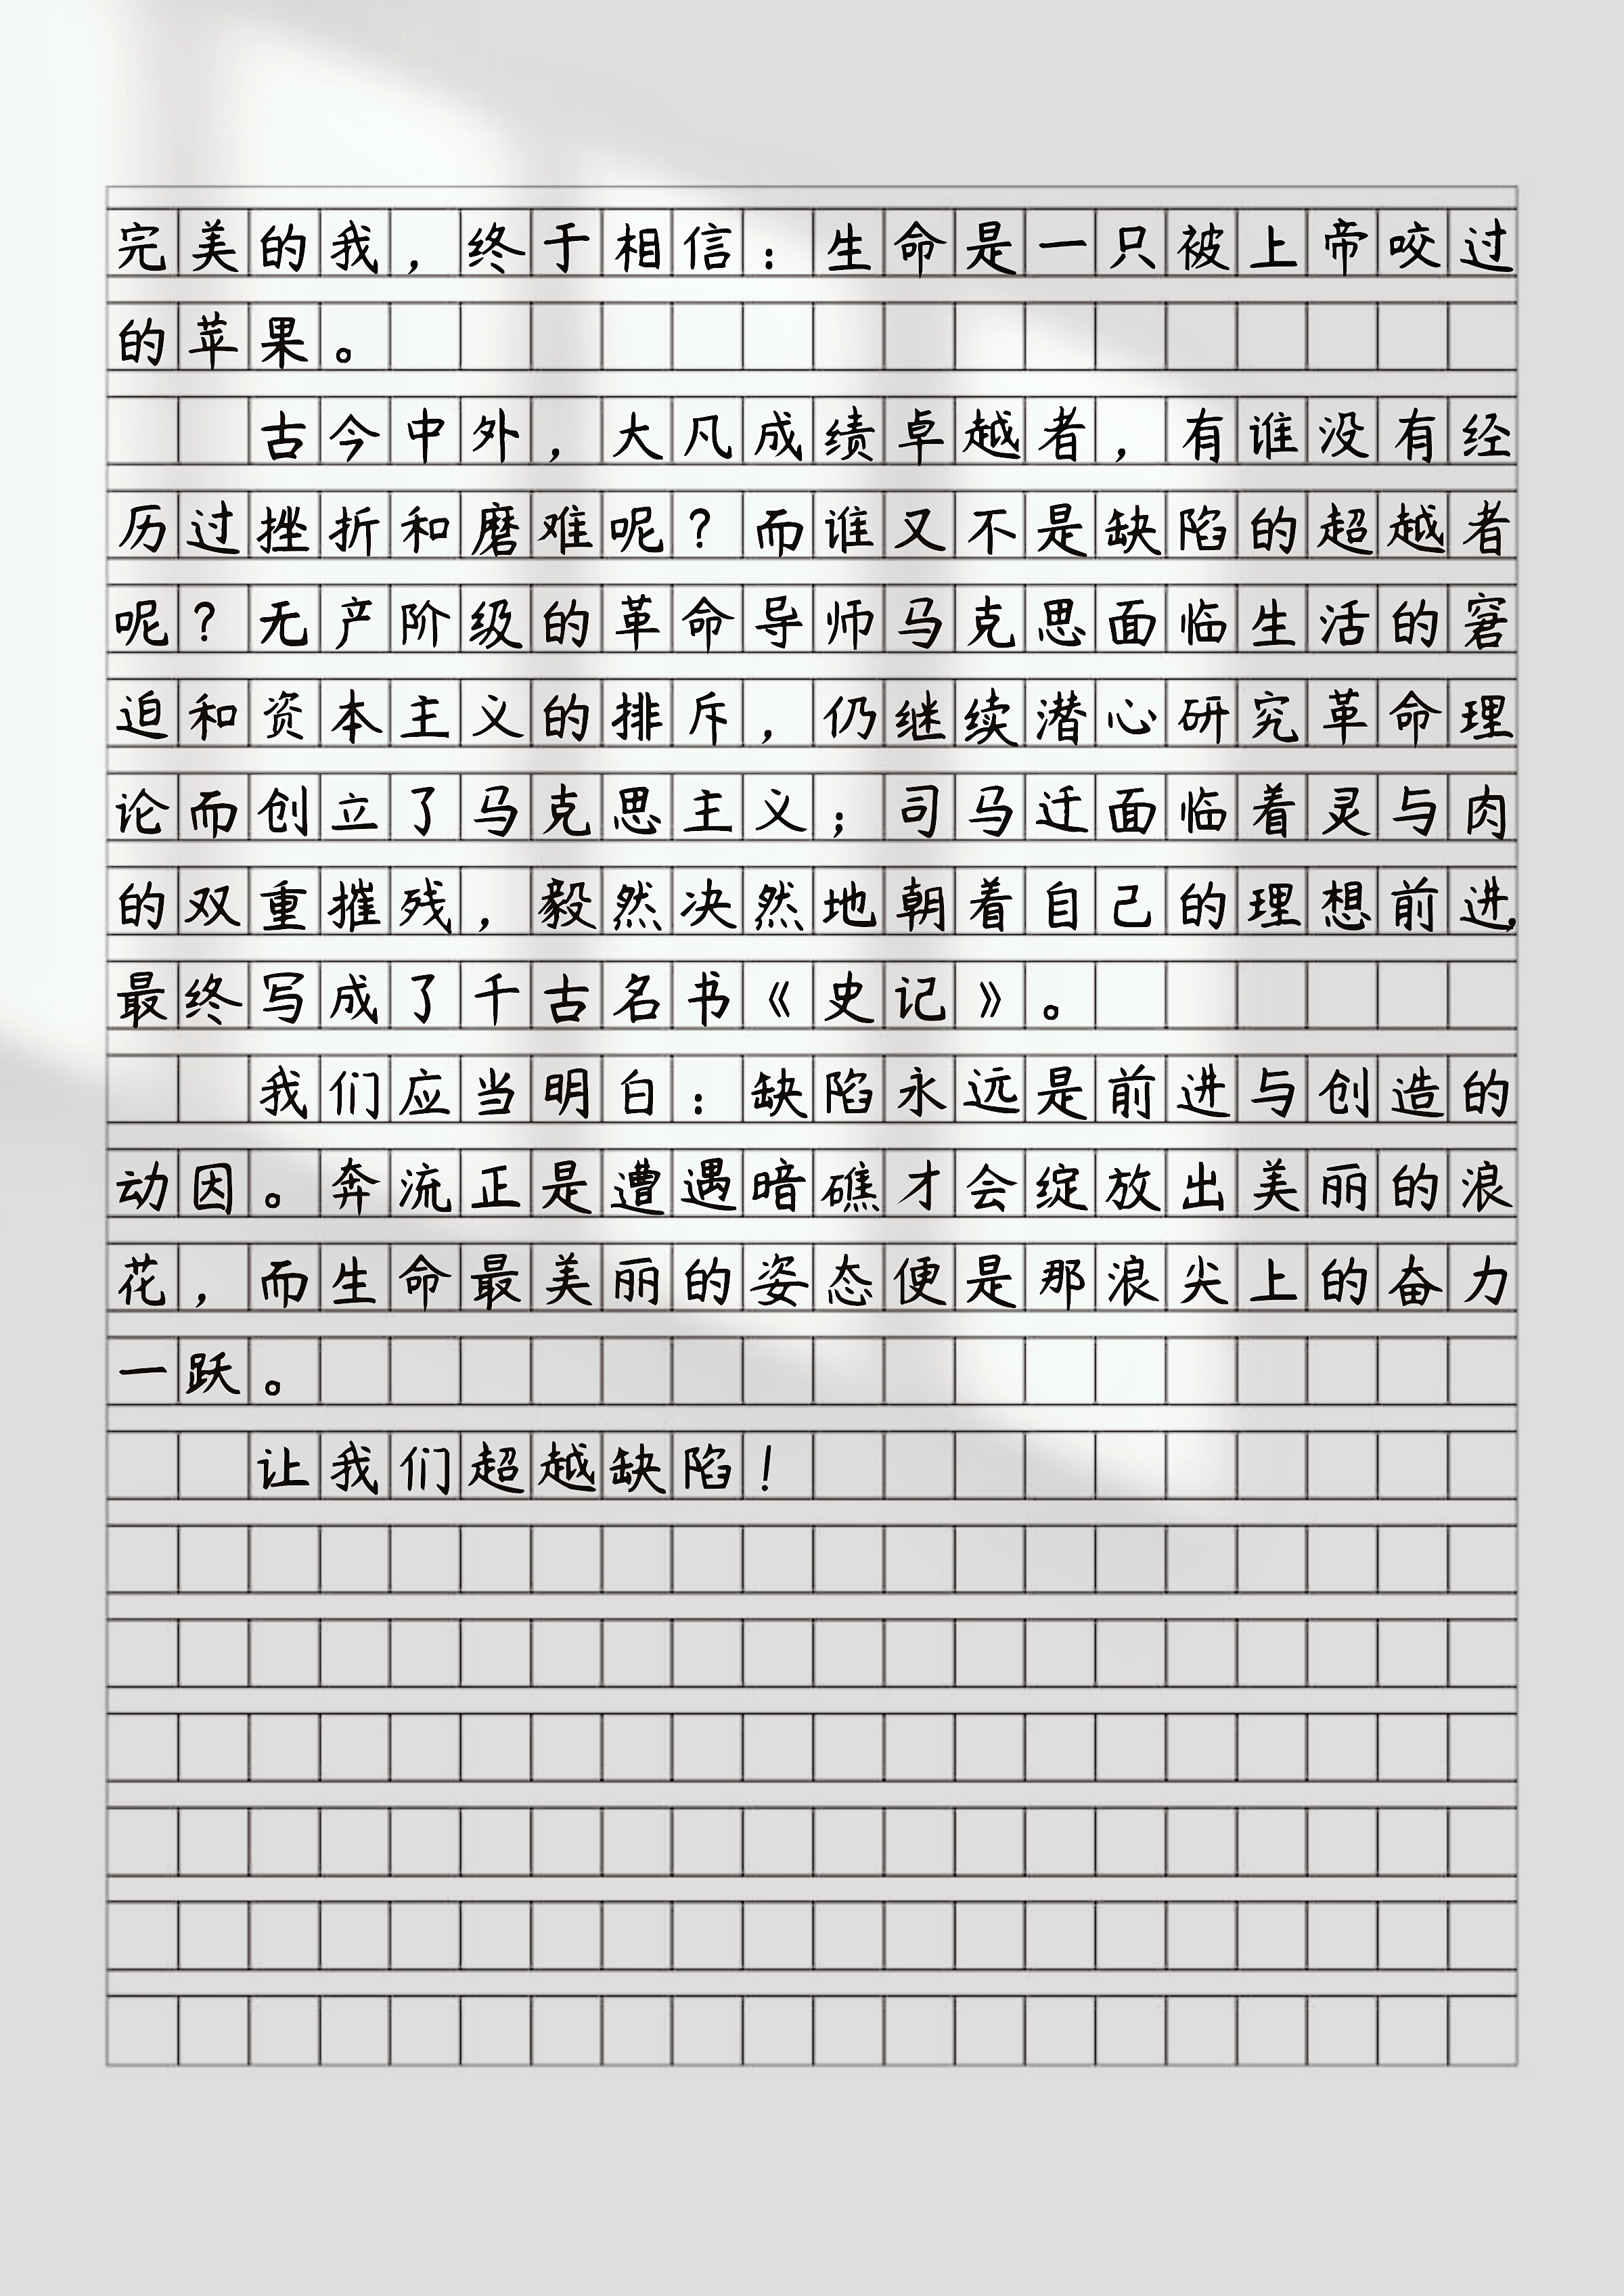 完美的我，终于相信：生命是一只被上帝咬过
的苹果。
古今中外，大凡成绩卓越者，有谁没有经
历过挫折和磨难呢？而谁又不是缺陷的超越者
呢？无产阶级的革命导师马克思面临生活的窘
迫和资本主义的排斥，仍继续潜心研究革命理
论而创立了马克思主义；司马迁面临着灵与肉
的双重摧残，毅然决然地朝着自己的理想前进，
最终写成了千古名书《史记》。
我们应当明白：缺陷永远是前进与创造的
动因。奔流正是遭遇暗礁才会绽放出美丽的浪
花，而生命最美丽的姿态便是那浪尖上的奋力
一跃。
让我们超越缺陷！